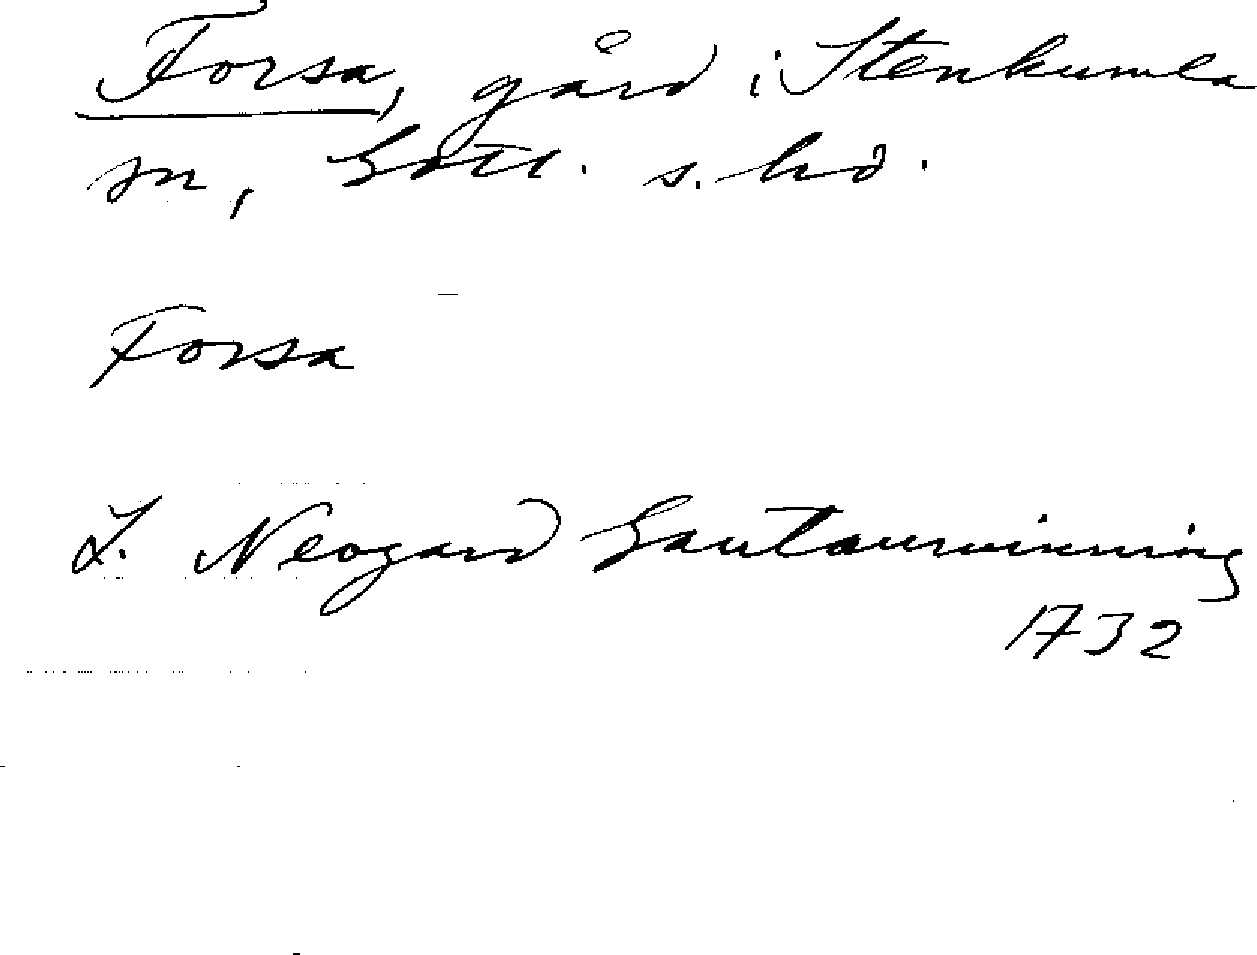 Forsa, gård i Stenkumla
sn, Gotl. s. hd.
Forsa
L. Neogard Gautauminning
1732